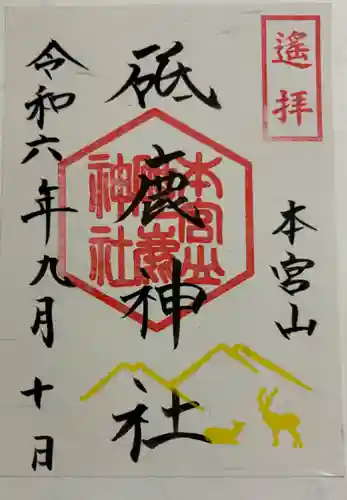 遙拝
本宮山
砥鹿神社
本宮山
砥鹿嶺
神社
令和六年九月十日